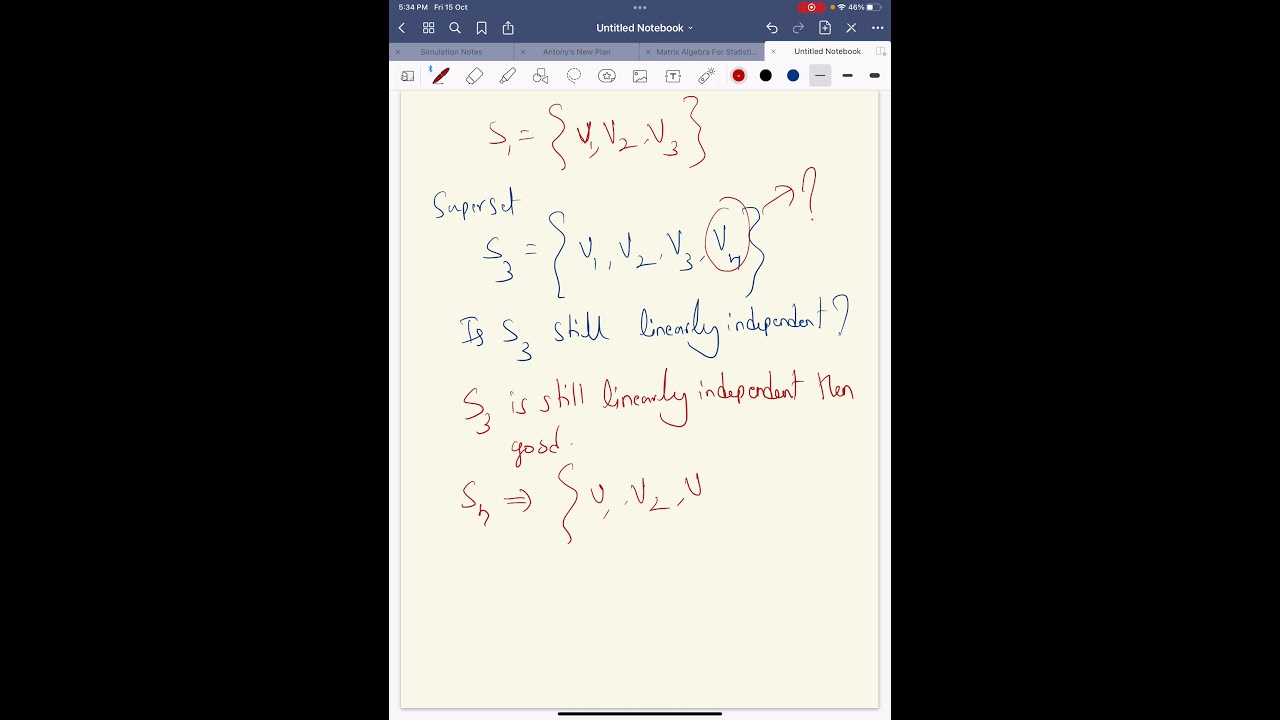 5:34 PM Fri 15 Oct
46%
Untitled Notebook
Simulation Notes
Antony's New Plan
Matrix Algebra For Statisti...
Untitled Notebook
S₁ = { V₁, V₂, V₃ }
Superset
S₃ = { V₁, V₂, V₃, V₄ } → ?
Is S₃ still linearly independent?
S₃ is still linearly independent then
good.
S₄ ⇒ { V₁, V₂, V